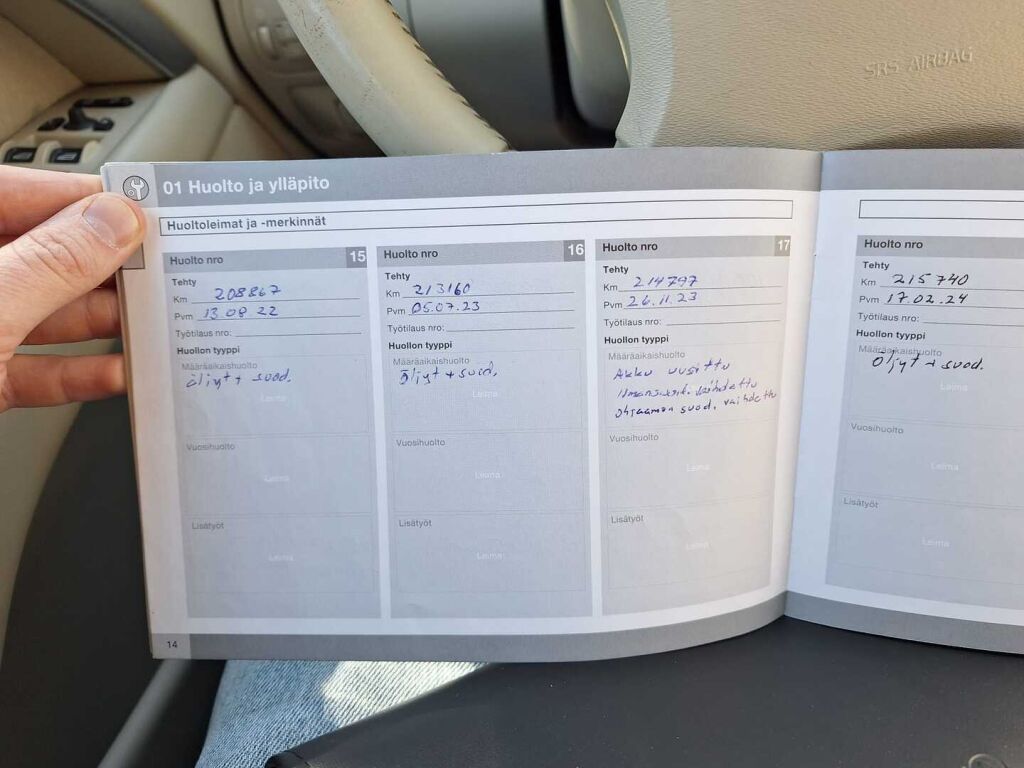 SRS AIRBAG
01 Huolto ja ylläpito
Huoltoleimat ja -merkinnät
Huolto nro 15
Tehty
Km 208867
Pvm 13 08 22
Työtilaus nro:
Huollon tyyppi
Määräaikaishuolto
öljyt + suod.
Leima
Vuosihuolto
Leima
Lisätyöt
Leima
Huolto nro 16
Tehty
Km 213160
Pvm 05.07.23
Työtilaus nro:
Huollon tyyppi
Määräaikaishuolto
Öljyt + suod.
Leima
Vuosihuolto
Leima
Lisätyöt
Leima
Huolto nro 17
Tehty
Km 214797
Pvm 26.11.23
Työtilaus nro:
Huollon tyyppi
Määräaikaishuolto
Akku uusittu
vaihdettu
ohjaamon suod. vaihdettu
Vuosihuolto
Leima
Lisätyöt
Leima
14
Huolto nro
Tehty
Km 215740
Pvm 17.02.24
Työtilaus nro:
Huollon tyyppi
Määräaikaishuolto
Öljyt + suod.
Leima
Vuosihuolto
Leima
Lisätyöt
Leima